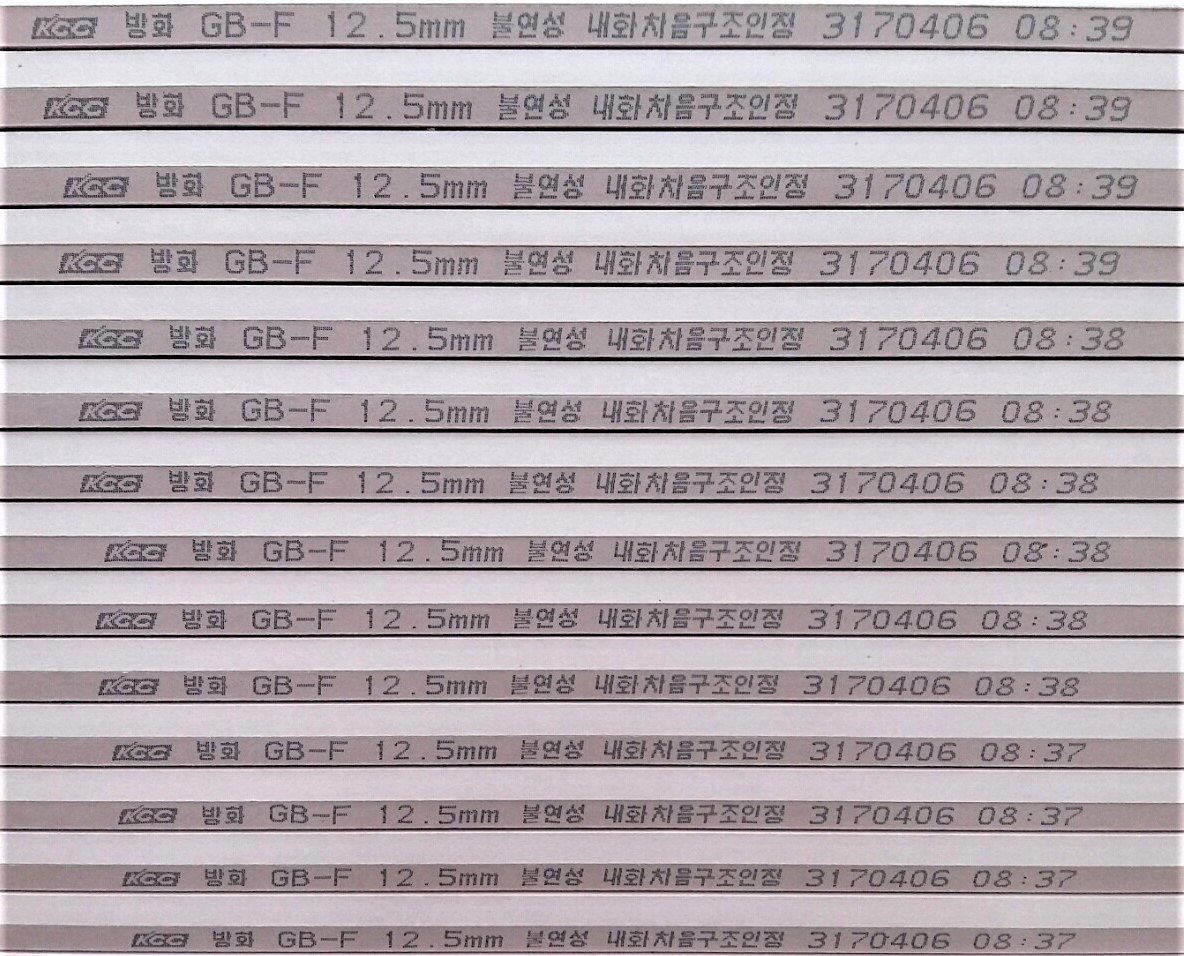 KCC 방화 GB-F 12.5mm 불연성 내화차음구조인정 3170406 08:39
KCC 방화 GB-F 12.5mm 불연성 내화차음구조인정 3170406 08:39
KCC 방화 GB-F 12.5mm 불연성 내화차음구조인정 3170406 08:39
KCC 방화 GB-F 12.5mm 불연성 내화차음구조인정 3170406 08:39
KCC 방화 GB-F 12.5mm 불연성 내화차음구조인정 3170406 08:38
KCC 방화 GB-F 12.5mm 불연성 내화차음구조인정 3170406 08:38
KCC 방화 GB-F 12.5mm 불연성 내화차음구조인정 3170406 08:38
KCC 방화 GB-F 12.5mm 불연성 내화차음구조인정 3170406 08:38
KCC 방화 GB-F 12.5mm 불연성 내화차음구조인정 3170406 08:38
KCC 방화 GB-F 12.5mm 불연성 내화차음구조인정 3170406 08:38
KCC 방화 GB-F 12.5mm 불연성 내화차음구조인정 3170406 08:37
KCC 방화 GB-F 12.5mm 불연성 내화차음구조인정 3170406 08:37
KCC 방화 GB-F 12.5mm 불연성 내화차음구조인정 3170406 08:37
KCC 방화 GB-F 12.5mm 불연성 내화차음구조인정 3170406 08:37